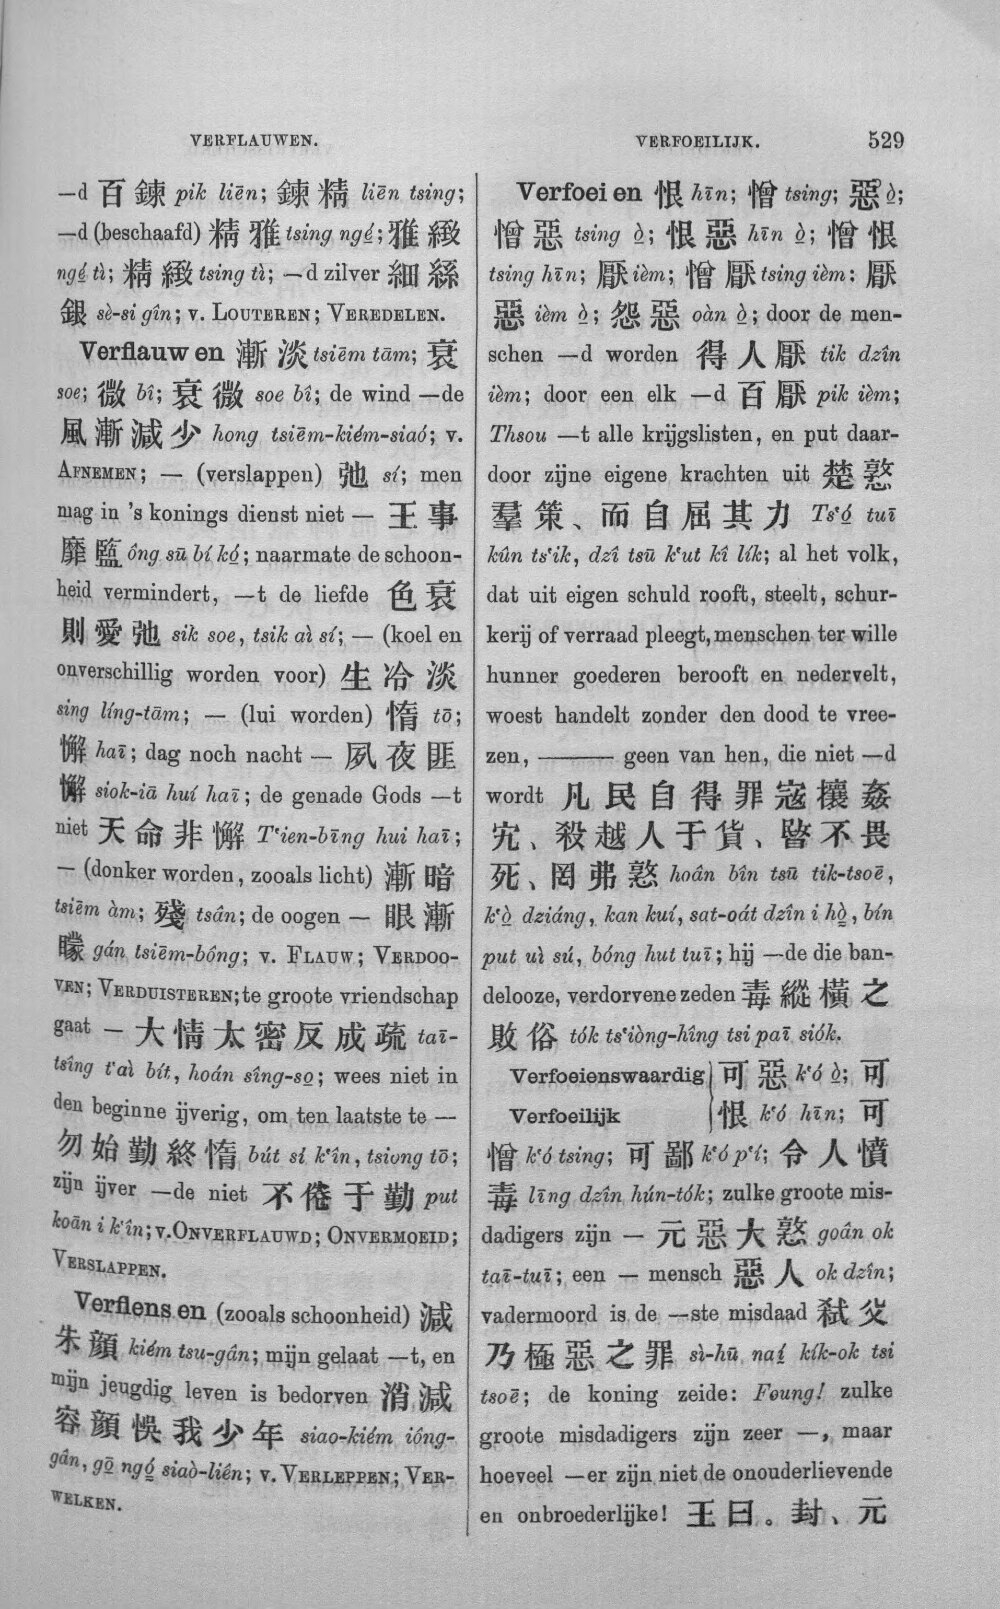 VERFLAUWEN.
VERFOEILIJK.
529
—d 百鍊 pik liēn; 鍊精 liēn tsing;
—d (beschaafd) 精雅 tsing ngé̱; 雅緻
ngé̱ tì; 精緻 tsing tì; —d zilver 細絲
銀 sè-si gîn; v. LOUTEREN; VEREDELEN.
Verflauwen 漸淡 tsiēm tām; 衰
soe; 微 bî; 衰微 soe bî; de wind —de
風漸減少 hong tsiēm-kiém-siaó; v.
AFNEMEN; — (verslappen) 弛 sí; men
mag in 's konings dienst niet — 王事
靡盬 ông sū bí kó̱; naarmate de schoon-
heid vermindert, —t de liefde 色衰
則愛弛 sik soe, tsik aì sí; — (koel en
onverschillig worden voor) 生冷淡
sing líng-tām; — (lui worden) 惰 tō;
懈 haī; dag noch nacht — 夙夜匪
懈 siok-iā huí haī; de genade Gods —t
niet 天命非懈 T'ien-bīng hui haī;
— (donker worden, zooals licht) 漸暗
tsiēm àm; 殘 tsân; de oogen — 眼漸
矇 gán tsiēm-bông; v. FLAUW; VERDOO-
VEN; VERDUISTEREN; te groote vriendschap
gaat — 大情太密反成疏 taī-
tsîng t'aì bít, hoán sîng-so̱; wees niet in
den beginne ijverig, om ten laatste te —
勿始勤終惰 bút sí k'în, tsiong tō;
zijn ijver —de niet 不倦于勤 put
koān i k'în; v. ONVERFLAUWD; ONVERMOEID;
VERSLAPPEN.
Verflensen (zooals schoonheid) 減
朱顏 kiém tsu-gân; mijn gelaat —t, en
mijn jeugdig leven is bedorven 消減
容顏悞我少年 siao-kiém iông-
gân, gō̱ ngó̱ siaò-liên; v. VERLEPPEN; VER-
WELKEN.
Verfoeien 恨 hīn; 憎 tsing; 惡 ò̱;
憎惡 tsing ò̱; 恨惡 hīn ò̱; 憎恨
tsing hīn; 厭 ièm; 憎厭 tsing ièm; 厭
惡 ièm ò̱; 怨惡 oàn ò̱; door de men-
schen —d worden 得人厭 tik dzîn
ièm; door een elk —d 百厭 pik ièm;
Thsou —t alle krijgslisten, en put daar-
door zijne eigene krachten uit 楚憝
羣策、而自屈其力 Ts'ó̱ tuī
kûn ts'ik, dzî tsū k'ut kî lík; al het volk,
dat uit eigen schuld rooft, steelt, schur-
kerij of verraad pleegt, menschen ter wille
hunner goederen berooft en nedervelt,
woest handelt zonder den dood te vree-
zen, ——— geen van hen, die niet —d
wordt 凡民自得罪寇攘姦
宄、殺越人于貨、暋不畏
死、罔弗憝 hoân bîn tsū tik-tsoē,
k'ò̱ dziáng, kan kuí, sat-oát dzîn i hò̱, bín
put uì sú, bóng hut tuī; hij —de die ban-
delooze, verdorvene zeden 毒縱橫之
敗俗 tók ts'iòng-hîng tsi paī siók.
Verfoeienswaardig 可惡 k'ó ò̱; 可
Verfoeilijk 恨 k'ó hīn; 可
憎 k'ó tsing; 可鄙 k'ó p'í; 令人憤
毒 līng dzîn hún-tók; zulke groote mis-
dadigers zijn — 元惡大憝 goân ok
taī-tuī; een — mensch 惡人 ok dzîn;
vadermoord is de —ste misdaad 弒父
乃極惡之罪 sì-hū naí kík-ok tsi
tsoē; de koning zeide: Foung! zulke
groote misdadigers zijn zeer —, maar
hoeveel —er zijn niet de onouderlievende
en onbroederlijke! 王曰。封、元